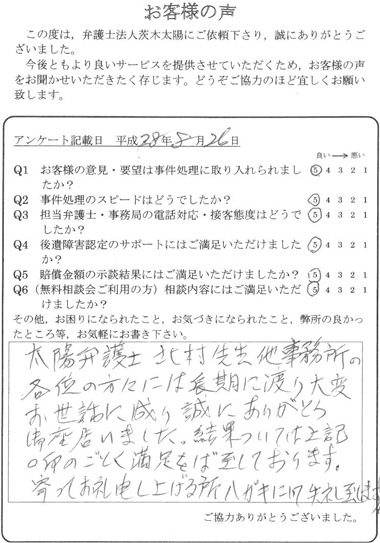 お客様の声
この度は，弁護士法人茨木太陽にご依頼下さり，誠にありがとうご
ざいました。
今後ともより良いサービスを提供させていただくため，お客様の声
をお聞かせいただきたく存じます。どうぞご協力のほど宜しくお願い
致します。
アンケート記載日 平成28年8月26日
良い → 悪い
Q1 お客様の意見・要望は事件処理に取り入れられまし 5 4 3 2 1
たか？
Q2 事件処理のスピードはどうでしたか？ 5 4 3 2 1
Q3 担当弁護士・事務局の電話対応・接客態度はどうで 5 4 3 2 1
したか？
Q4 後遺障害認定のサポートにはご満足いただけました 5 4 3 2 1
か？
Q5 賠償金額の示談結果にはご満足いただけましたか？ 5 4 3 2 1
Q6（無料相談会ご利用の方）相談内容にはご満足いただ 5 4 3 2 1
けましたか？
その他，お困りになられたこと，お気づきになられたこと，弊所の良かっ
たところ等，お気軽にお書き下さい。
太陽弁護士 北村先生他事務所の
各位の方々には長期に渡り大変
お世話に成り誠にありがとう
御座居いました。結果ついては上記
○印のごとく満足をば至しております。
寄ってお礼申し上げる所ハガキにて失礼
ご協力ありがとうございました。